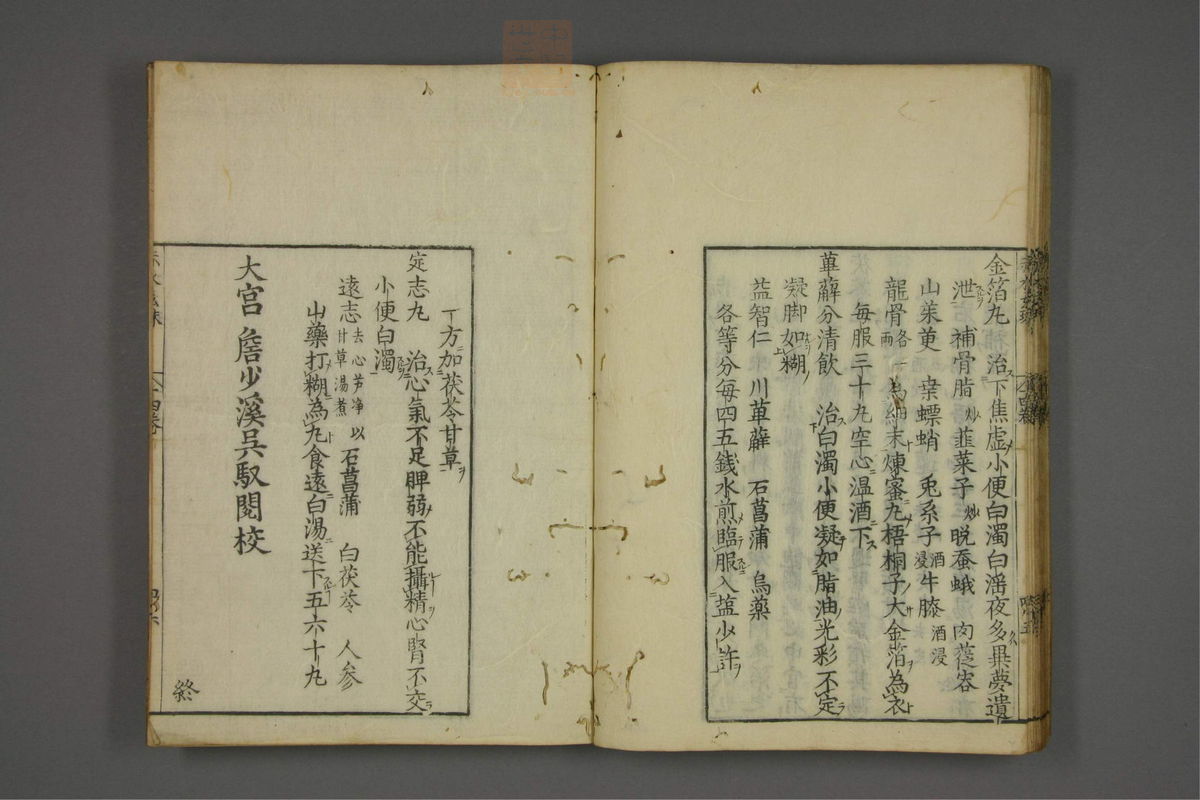 金箔丸　治下焦虚小便白濁白淫夜多異夢遺
泄　補骨脂炒　韮菜子炒　晩蚕蛾　肉蓯容
山茱萸　桒螵蛸　兎糸子酒浸　牛膝酒浸
龍骨各一両　為細末煉蜜丸梧桐子大金箔為衣
毎服三十丸空心温酒下
萆薢分清飲　治白濁小便凝如脂油光彩不定
凝脚如糊
益智仁　川萆薢　石菖蒲　烏薬
各等分毎四五銭水煎臨服入塩少許
一方加茯苓甘草
定志丸　治心氣不足脾弱不能攝精心腎不交
小便白濁
遠志去心芦浄以甘草湯煮　石菖蒲　白茯苓　人参
山藥打糊為丸食遠白湯送下五六十丸
大宫詹少溪吳馭閱校
終